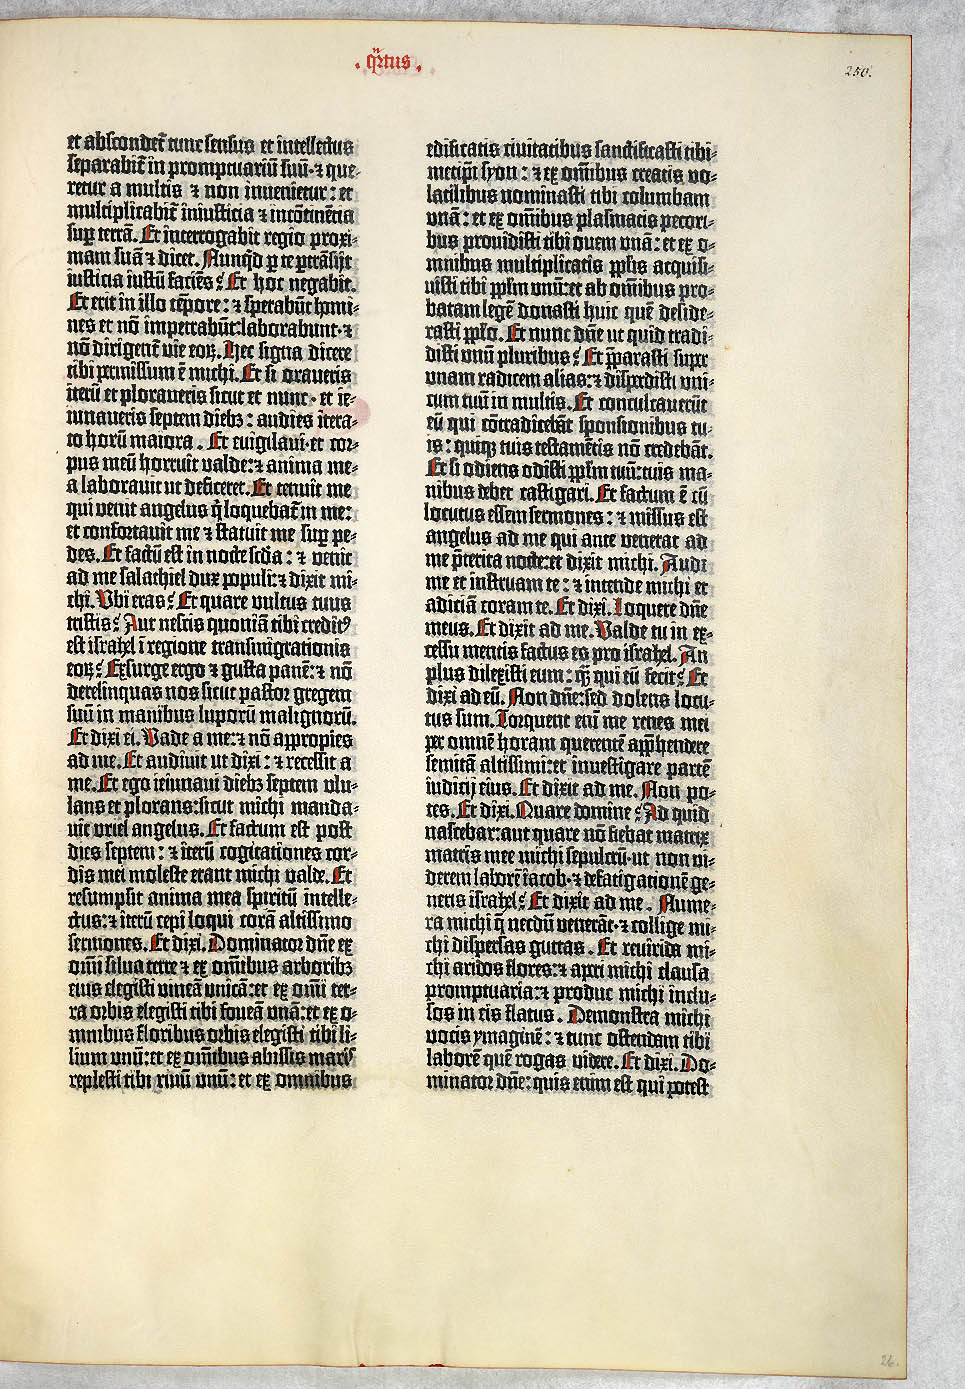 . qrtus .
250.
et abscondet̃ tunc sensus et intellectus
separabit̃ in promptuariũ suũ · ⁊ que⸗
retur a multis ⁊ non invenietur : et
multiplicabit̃ iniusticia ⁊ incõtinẽcia
sup̱ terrã. Et interrogabit regio proxi⸗
mam suã ⁊ dicet. Nunqͥd p̱ te p̱trãsijt
iusticia iustũ faciẽs? Et hoc negabit.
Et erit in illo tẽpore : ⁊ sperabũt homi⸗
nes et nõ impetrabũt : laborabunt · ⁊
nõ dirigent̃ vie eoꝝ. Hec signa dicere
tibi permissum ẽ michi. Et si oraveris
iterũ et ploraveris sicut et nunc · et ie⸗
iunaveris septem diebꝫ : audies itera⸗
to horũ maiora. Et euigilaui · et cor⸗
pus meũ horruit valde : ⁊ anima me⸗
a laborauit ut deficeret. Et tenuit me
qui venit angelus q̃ loquebat̃ in me :
et confortauit me ⁊ statuit me sup̱ pe⸗
des. Et factũ est in nocte scd̃a : ⁊ venit
ad me salathiel dux populi : ⁊ dixit mi⸗
chi. Vbi eras? Et quare vultus tuus
tristis? Aut nescis quoniã tibi creditꝰ
est israhel ĩ regione transmigrationis
eoꝝ? Exsurge ergo ⁊ gusta panẽ : ⁊ nõ
derelinquas nos sicut pastor gregem
suũ in manibus luporũ malignorũ.
Et dixi ei. Vade a me : ⁊ nõ appropies
ad me. Et audiuit ut dixi : ⁊ recessit a
me. Et ego ieiunaui diebꝫ septem ulu⸗
lans et plorans : sicut michi manda⸗
uit vriel angelus. Et factum est post
dies septem : ⁊ iterũ cogitationes cor⸗
dis mei moleste erant michi valde. Et
resumpsit anima mea spiritũ intelle⸗
ctus : ⁊ iterũ cepi loqui corã altissimo
sermones. Et dixi. Dominator dñe ex
om̃i silua terre ⁊ ex om̃ibus arboribꝫ
eius elegisti vineã vnicã : et ex om̃i ter⸗
ra orbis elegisti tibi foueã vnã : et ex o⸗
mnibus floribus orbis elegisti tibi li⸗
lium vnũ : et ex om̃ibus abissis maris
replesti tibi riuũ vnũ : et ex omnibus
edificatis ciuitatibus sanctificasti tibi⸗
metip̃i syon : ⁊ ex om̃ibus creatis vo⸗
latilibus nominasti tibi columbam
vnã : et ex om̃ibus plasmatis pecori⸗
bus prouidisti tibi ouem vnã : et ex o⸗
mnibus multiplicatis pp̃lis acquisi⸗
uisti tibi pp̃lm vnũ : et ab om̃ibus pro⸗
batam legẽ donasti huic quẽ deside⸗
rasti pp̃lo. Et nunc dñe ut quid tradi⸗
disti vnũ pluribus? Et p̃parasti super
vnam radicem alias : ⁊ disp̱disti vni⸗
cum tuũ in multis. Et conculcauerũt
eũ qui cõtradicebãt sponsionibus tu⸗
is : quiqꝫ tuis testamẽtis nõ credebãt.
Et si odiens odisti pp̃lm tuũ : tuis ma⸗
nibus debet castigari. Et factum ẽ cũ
locutus essem sermones : ⁊ missus est
angelus ad me qui ante venerat ad
me p̃terita nocte : et dixit michi. Audi
me et instruam te : ⁊ intende michi et
adiciã coram te. Et dixi. Loquere dñe
meus. Et dixit ad me. Valde tu in ex⸗
cessu mentis factus es pro israhel. An
plus dilexisti eum : q̃ꝫ qui eũ fecit? Et
dixi ad eũ. Non dñe : sed dolens locu⸗
tus sum. Torquent eni᷒ me renes mei
per omnẽ horam querentẽ app̃hendere
semitã altissimi : et inuestigare partẽ
iudicij eius. Et dixit ad me. Non po⸗
tes. Et dixi. Quare domine? Ad quid
nascebar : aut quare nõ fiebat matrix
matris mee michi sepulcrũ · ut non vi⸗
derem laborẽ iacob · ⁊ defatigationẽ ge⸗
neris israhel? Et dixit ad me. Nume⸗
ra michi q̃ necdũ venerãt · ⁊ collige mi⸗
chi dispersas guttas. Et reuirida mi⸗
chi aridos flores : ⁊ apri michi clausa
promptuaria : ⁊ produc michi inclu⸗
sos in eis flatus. Demonstra michi
vocis ymaginẽ : ⁊ tunc ostendam tibi
laborẽ quẽ rogas videre. Et dixi. Do⸗
minator dñe : quis enim est qui potest
26.